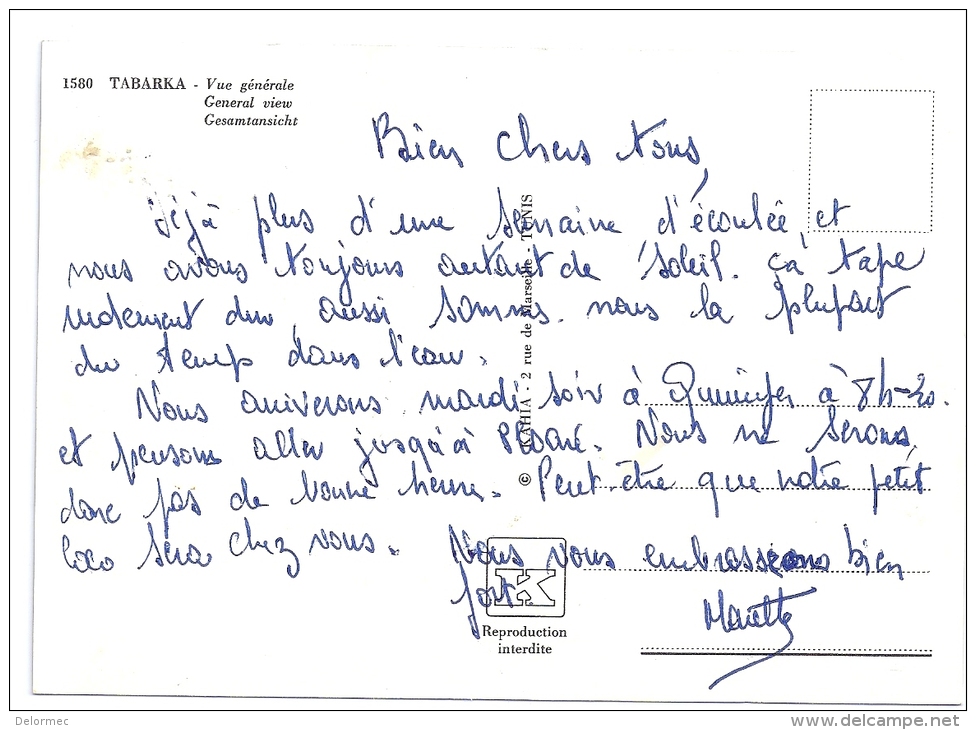 1580 TABARKA - Vue générale
General view
Gesamtansicht
Bien chers tous,
Déjà plus d'une semaine d'écoulée, et
nous avons toujours autant de soleil. ça tape
rudement dur, aussi sommes nous la plupart
du temps dans l'eau.
Nous arriverons mardi soir à Quimper à 8h-20.
et pensons aller jusqu'à Ploaré. Nous ne serons
donc pas de bonne heure. Peut-être que notre petit
loco sera chez vous. Nous vous embrassons bien
fort.
© KAHIA - 2 rue de Marseille - TUNIS
K
Reproduction
interdite
Delormec
www.delcampe.net